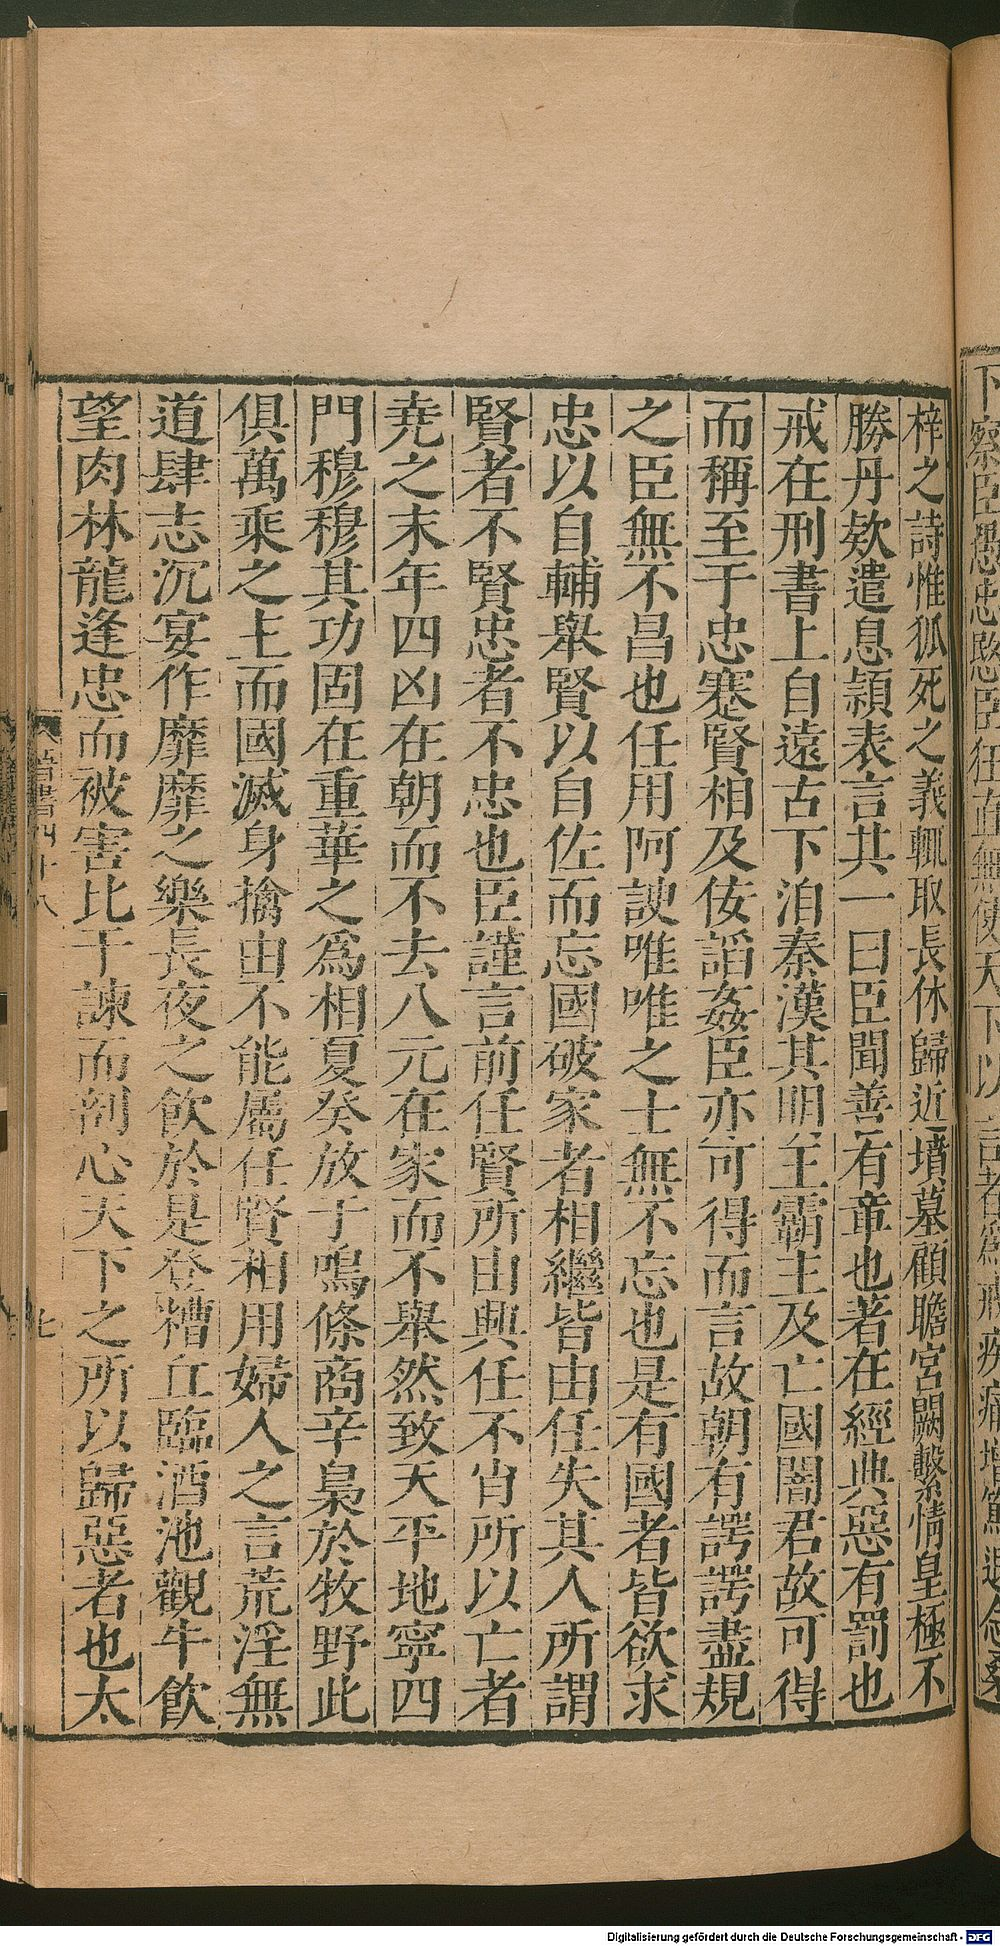 下察臣愚忠愍臣狂直無使天下以言者爲戒疾痛增篤退念桑
梓之詩惟狐死之義輒取長休歸近墳墓顧瞻宮闕繫情皇極不
勝丹欵遣息頴表言其一曰臣聞善有章也著在經典惡有罰也
戒在刑書上自遠古下洎秦漢其明王霸主及亡國闇君故可得
而稱至于忠蹇賢相及佞諂姦臣亦可得而言故朝有諤諤盡規
之臣無不昌也任用阿諛唯唯之士無不忘也是有國者皆欲求
忠以自輔舉賢以自佐而忘國破家者相繼皆由任失其人所謂
賢者不賢忠者不忠也臣謹言前任賢所由興任不肖所以亡者
堯之末年四凶在朝而不去八元在家而不舉然致天平地寧四
門穆穆其功固在重華之爲相夏癸放于鳴條商辛梟於牧野此
俱萬乘之主而國滅身擒由不能屬任賢相用婦人之言荒淫無
道肆志沉宴作靡靡之樂長夜之飲於是登糟丘臨酒池觀牛飲
望肉林龍逢忠而被害比干諫而剖心天下之所以歸惡者也太
晉書四十八
七
Digitalisierung gefördert durch die Deutsche Forschungsgemeinschaft - DFG